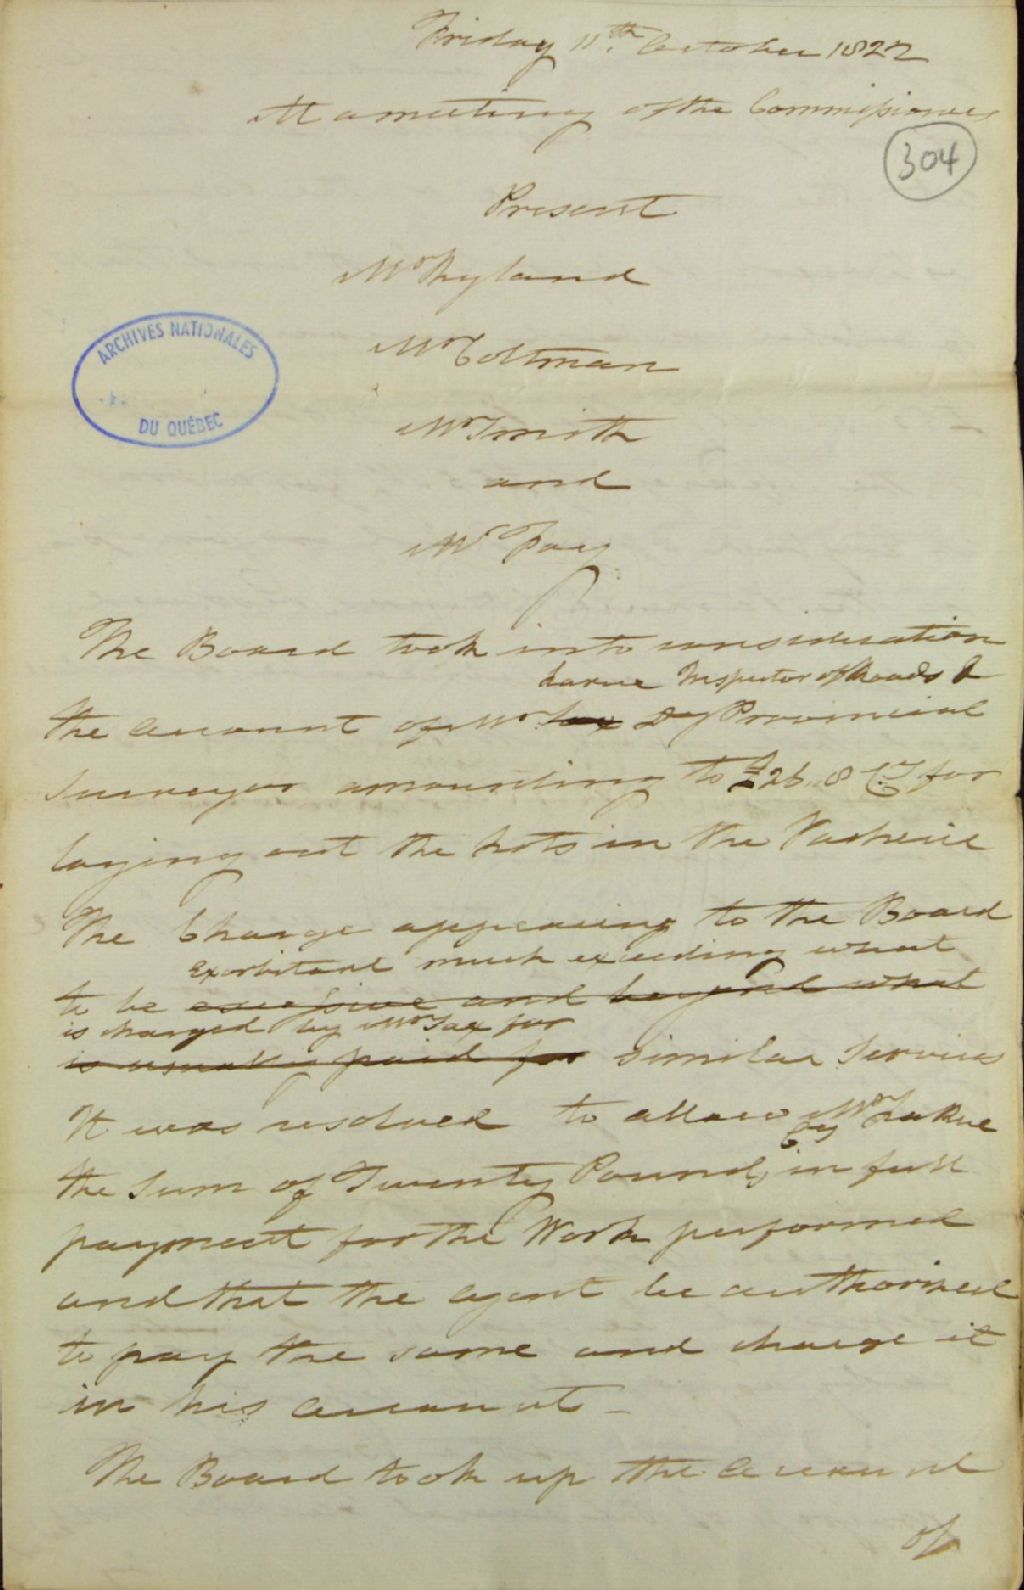 Friday 11th. October 1822
At a meeting of the Commissioners
304
Present
Mr Ryland
ARCHIVES NATIONALES
DU QUÉBEC
Mr Coltman
Mr Smith
and
Mr Foy
The Board took into consideration
Larue Inspector of Roads &
the account of Mr Sax Dy Provincial
Surveyor amounting to £26.8 Cy for
laying out the Lots in the Vacherie
The Charge appearing to the Board
Exorbitant much exceeding what
to be excessive and beyond what
is charged by Mr Sax for
is usually paid for similar Services
It was resolved to allow Mr LaRue
Cy
the Sum of Twenty Pounds, in full
payment for the Work performed
and that the agent be authorized
to pay the same and charge it
in his account -
The Board took up the account
of